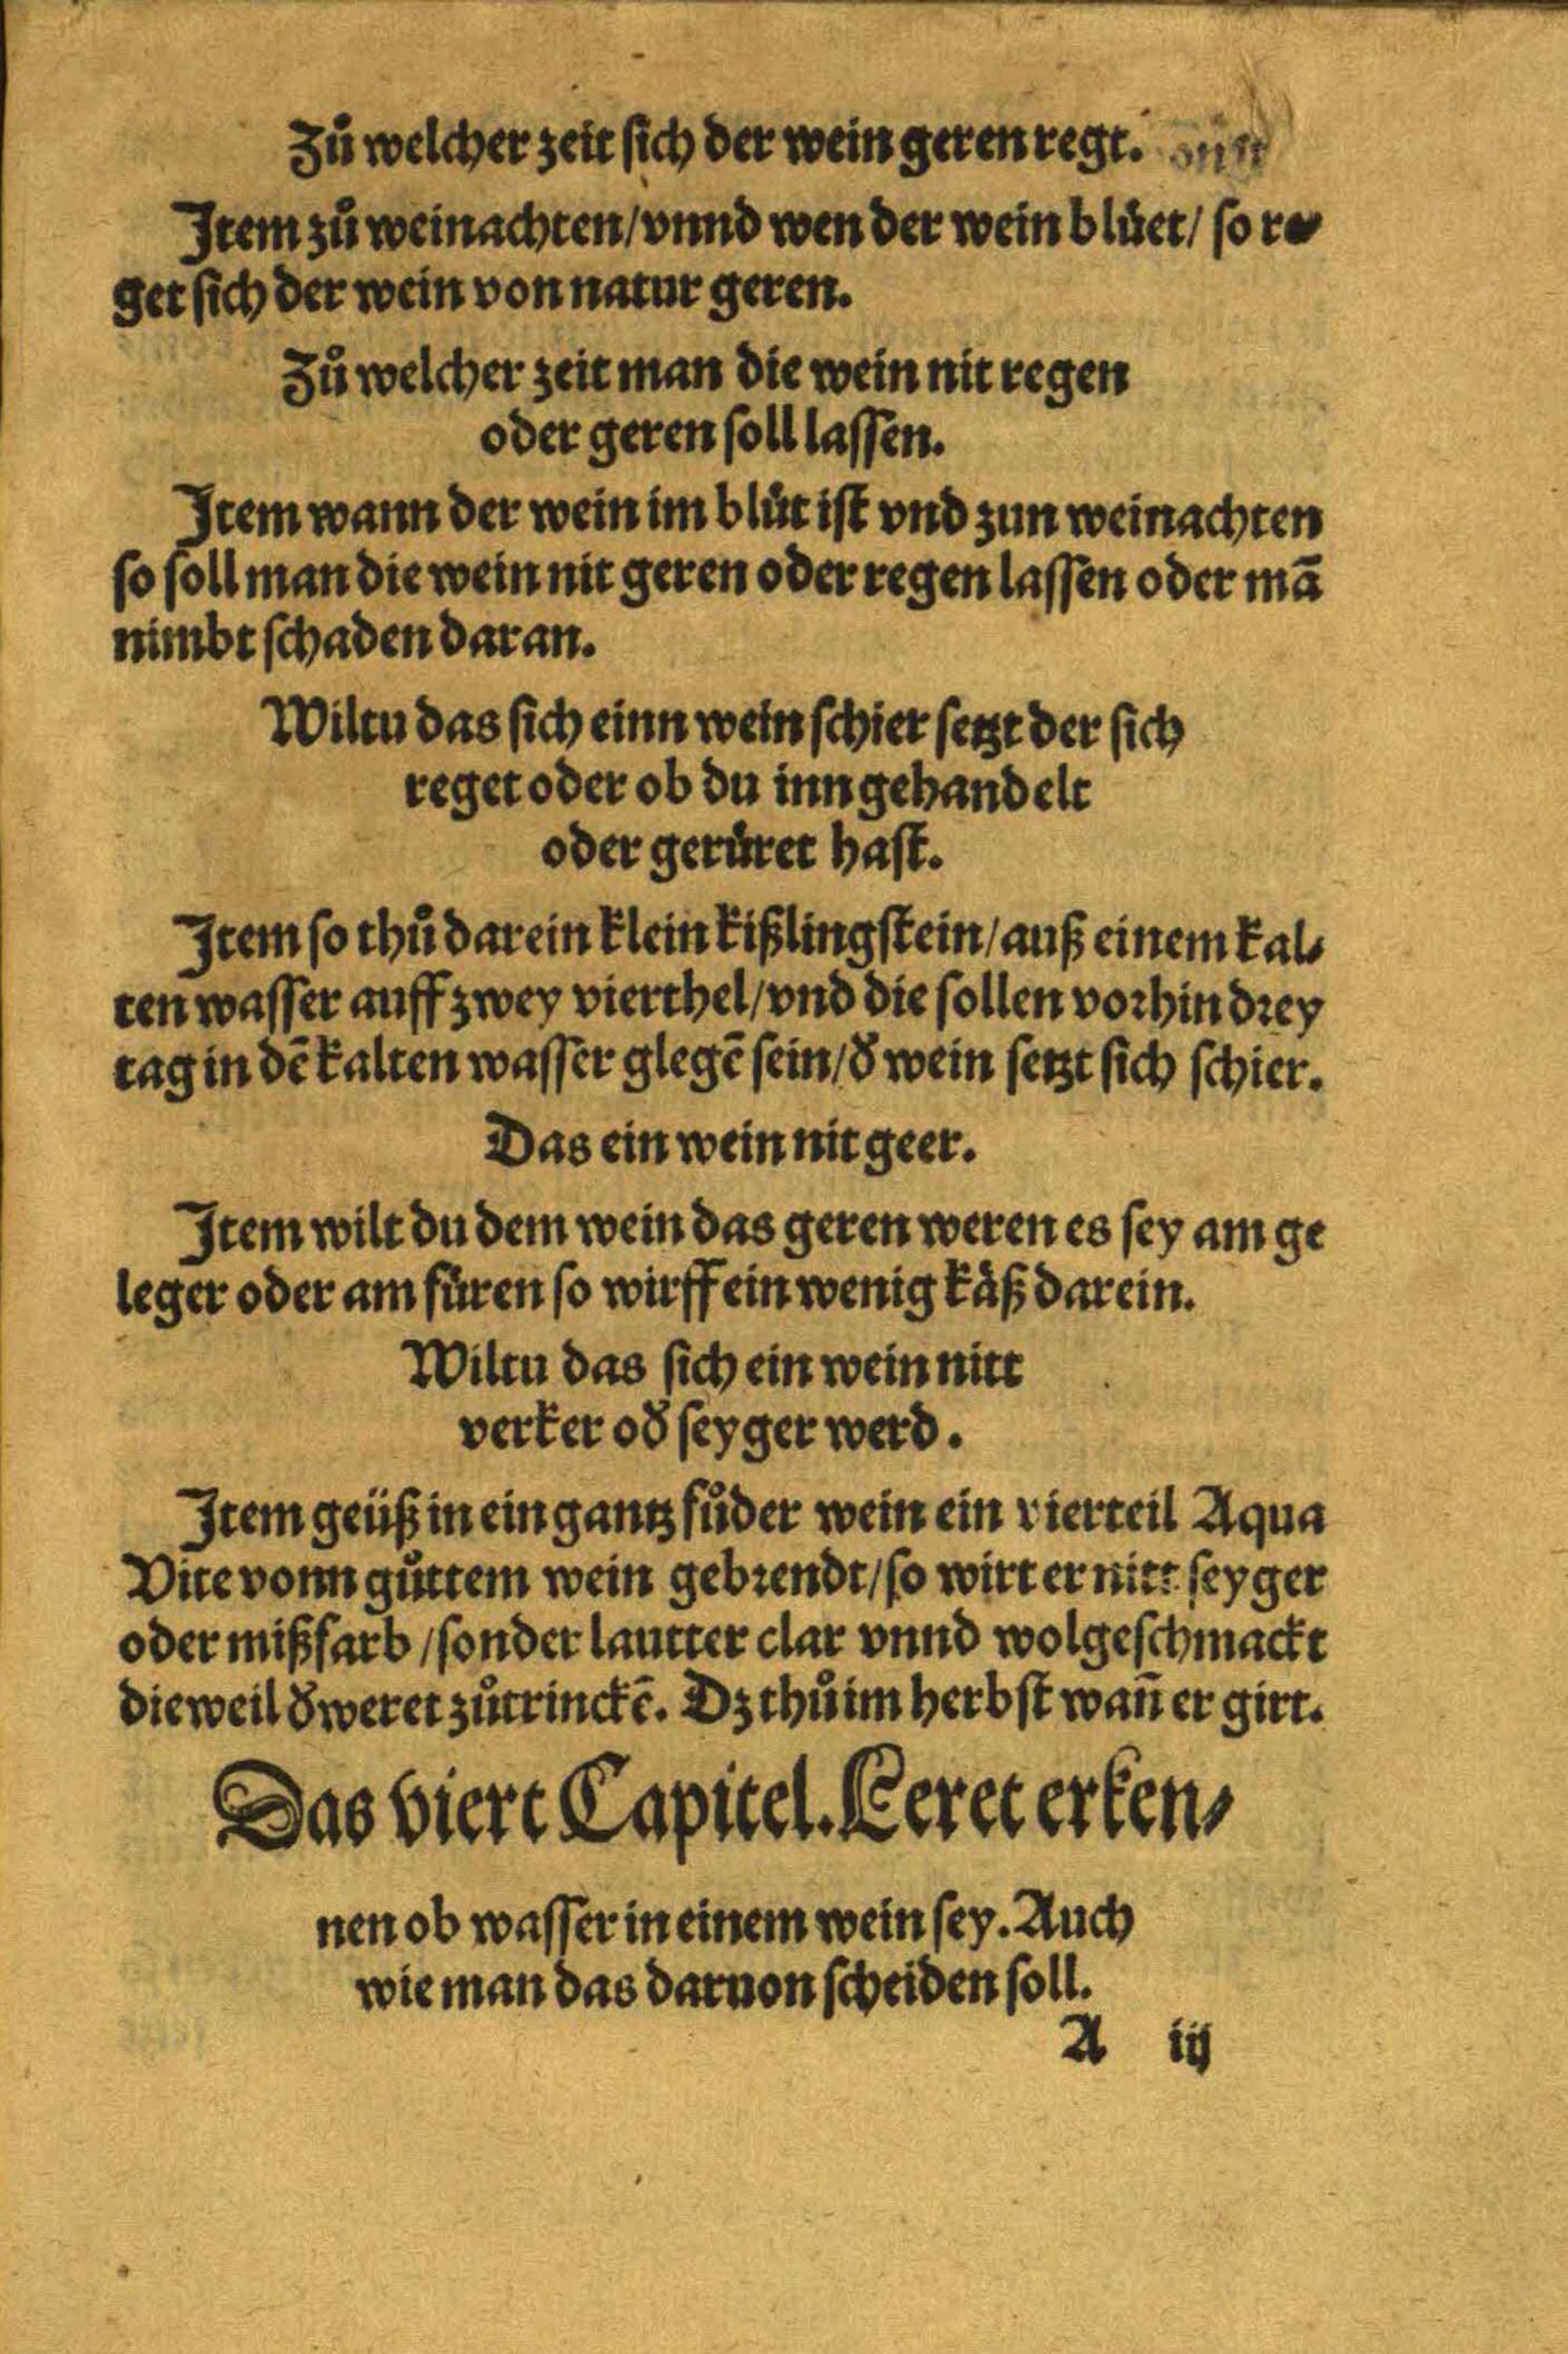 Zů welcher zeit sich der wein geren regt.
Item zů weinachten/vnnd wen der wein blüet/ so re⸗
get sich der wein von natur geren.
Zů welcher zeit man die wein nit regen
oder geren soll lassen.
Item wann der wein im blüt ist vnd zun weinachten
so soll man die wein nit geren oder regen lassen oder mā
nimbt schaden daran.
Wiltu das sich einn wein schier setzt der sich
reget oder ob du inn gehandelt
oder gerüret hast.
Item so thů darein klein kißlingstein/auß einem kal⸗
ten wasser auff zwey vierthel/vnd die sollen vorhin drey
tag in dē kalten wasser glegē sein/d̕ wein setzt sich schier.
Das ein wein nit geer.
Item wilt du dem wein das geren weren es sey am ge
leger oder am füren so wirff ein wenig käß darein.
Wiltu das sich ein wein nitt
verker od̕ seyger werd.
Item geüß in ein gantz fůder wein ein vierteil Aqua
Vite vonn gůttem wein gebrendt/so wirt er nitt seyger
oder mißfarb/sonder lautter clar vnnd wolgeschmackt
dieweil d̕ weret zůtrinckē. Dz thů im herbst wañ er girt.
Das viert Capitel. Leret erken⸗
nen ob wasser in einem wein sey. Auch
wie man das daruon scheiden soll.
A iij